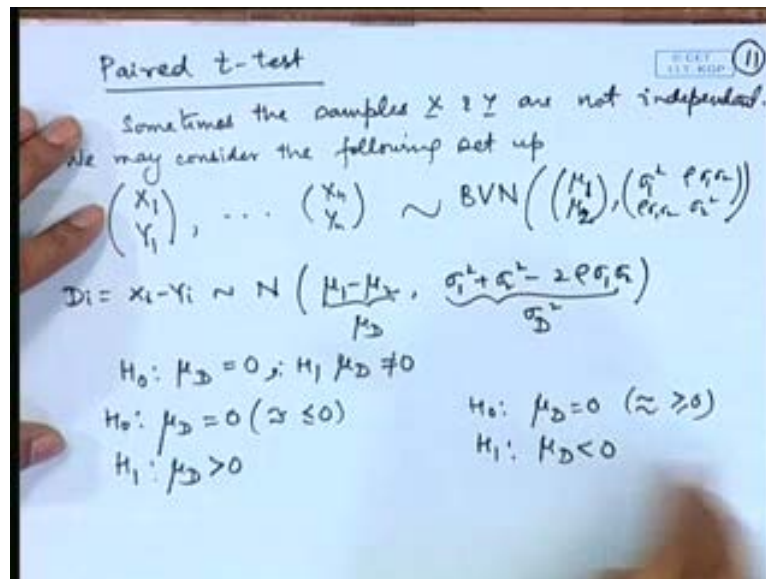 Paired t-test
© CET
I.I.T. KGP
11
Sometimes the samples X & Y are not independent.
We may consider the following set up
(X₁ Y₁), ... (Xₙ Yₙ) ~ BVN((μ₁ μ₂), (σ₁² ρσ₁σ₂ ρσ₁σ₂ σ₂²))
Di = Xi-Yi ~ N (μ₁-μ₂, σ₁²+σ₂²-2ρσ₁σ₂)
μ_D σ_D²
H₀: μ_D = 0 ; H₁ μ_D ≠ 0
H₀: μ_D = 0 (≈ ≤0) H₀: μ_D = 0 (≈ ≥0)
H₁: μ_D > 0 H₁: μ_D < 0